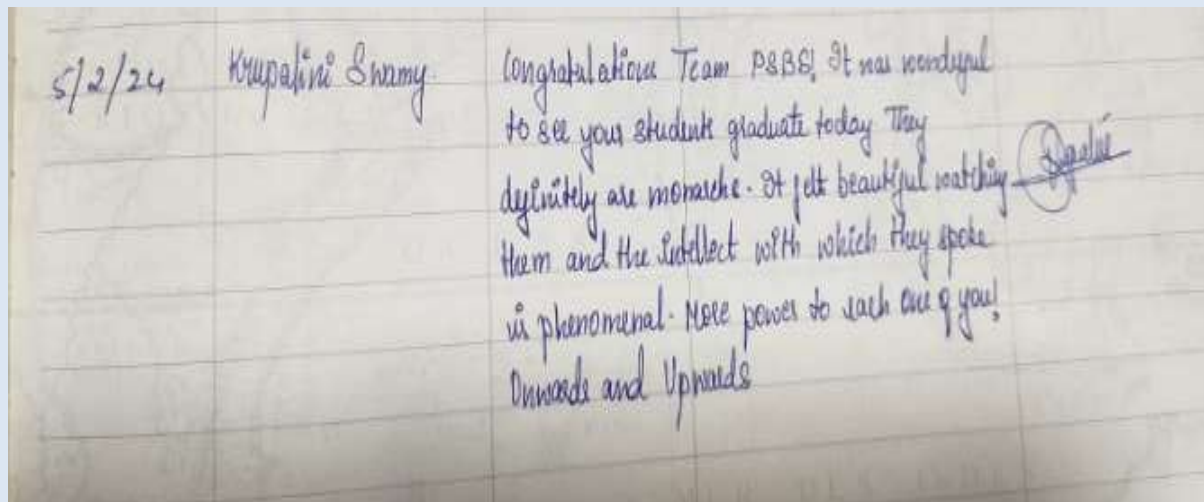 5/2/24 Krupalini Swamy Congratulations Team PSBB! It was wonderful
to see your students graduate today They
definitely are monarchs. It felt beautiful watching
them and the intellect with which they spoke
is phenomenal. More power to each one of you!
Onwards and Upwards